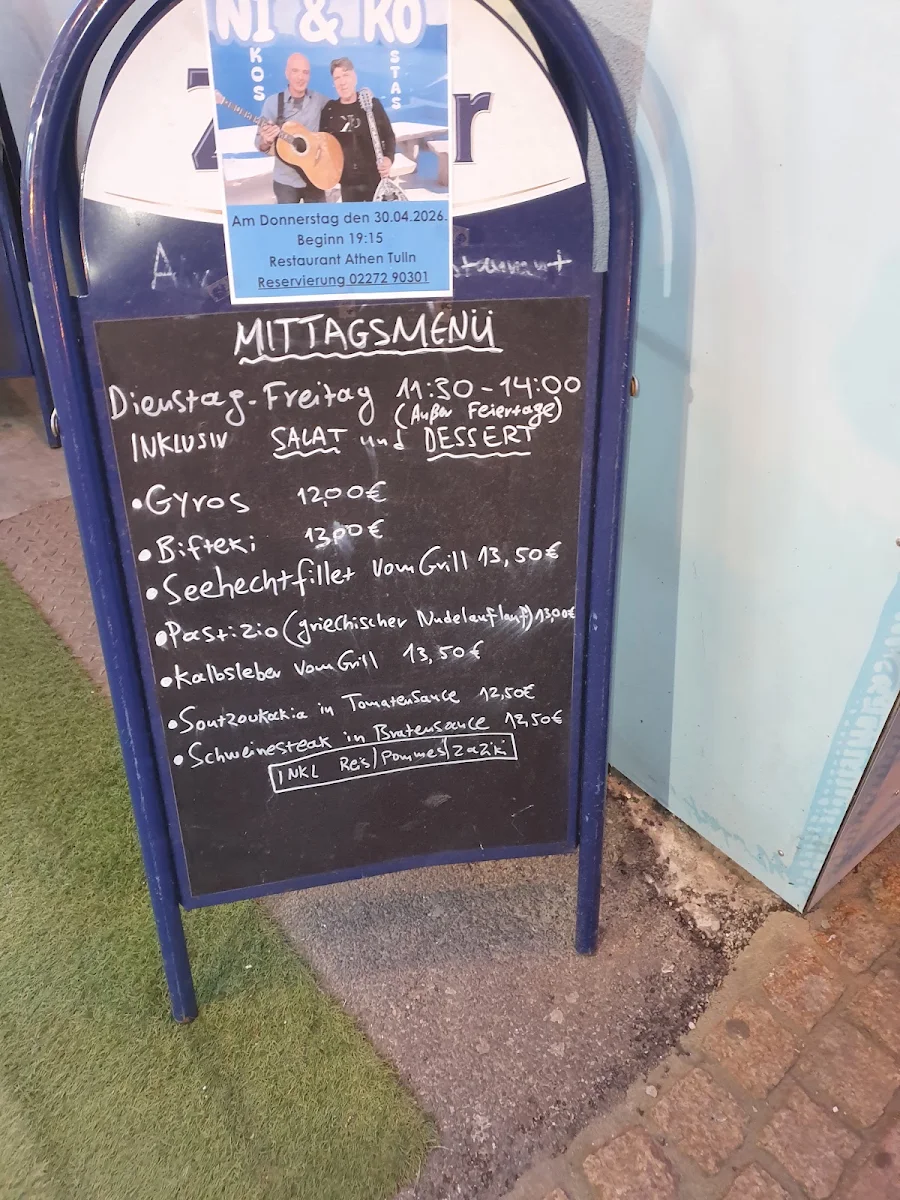 NI & KO
KOS
STAS
Z r
Am Donnerstag den 30.04.2026.
Beginn 19:15
Restaurant Athen Tulln
Reservierung 02272 90301
MITTAGSMENÜ
Dienstag-Freitag 11:30-14:00
(Außer Feiertage)
INKLUSIV SALAT und DESSERT
•Gyros 12,00€
•Bifteki 13,00€
•Seehechtfillet vom Grill 13,50€
•Pastizio (griechischer Nudelauflauf) 13,00€
•Kalbsleber vom Grill 13,50€
•Soutzoukakia in Tomatensauce 12,50€
•Schweinesteak in Bratensauce 12,50€
INKL Reis/Pommes/Zaziki